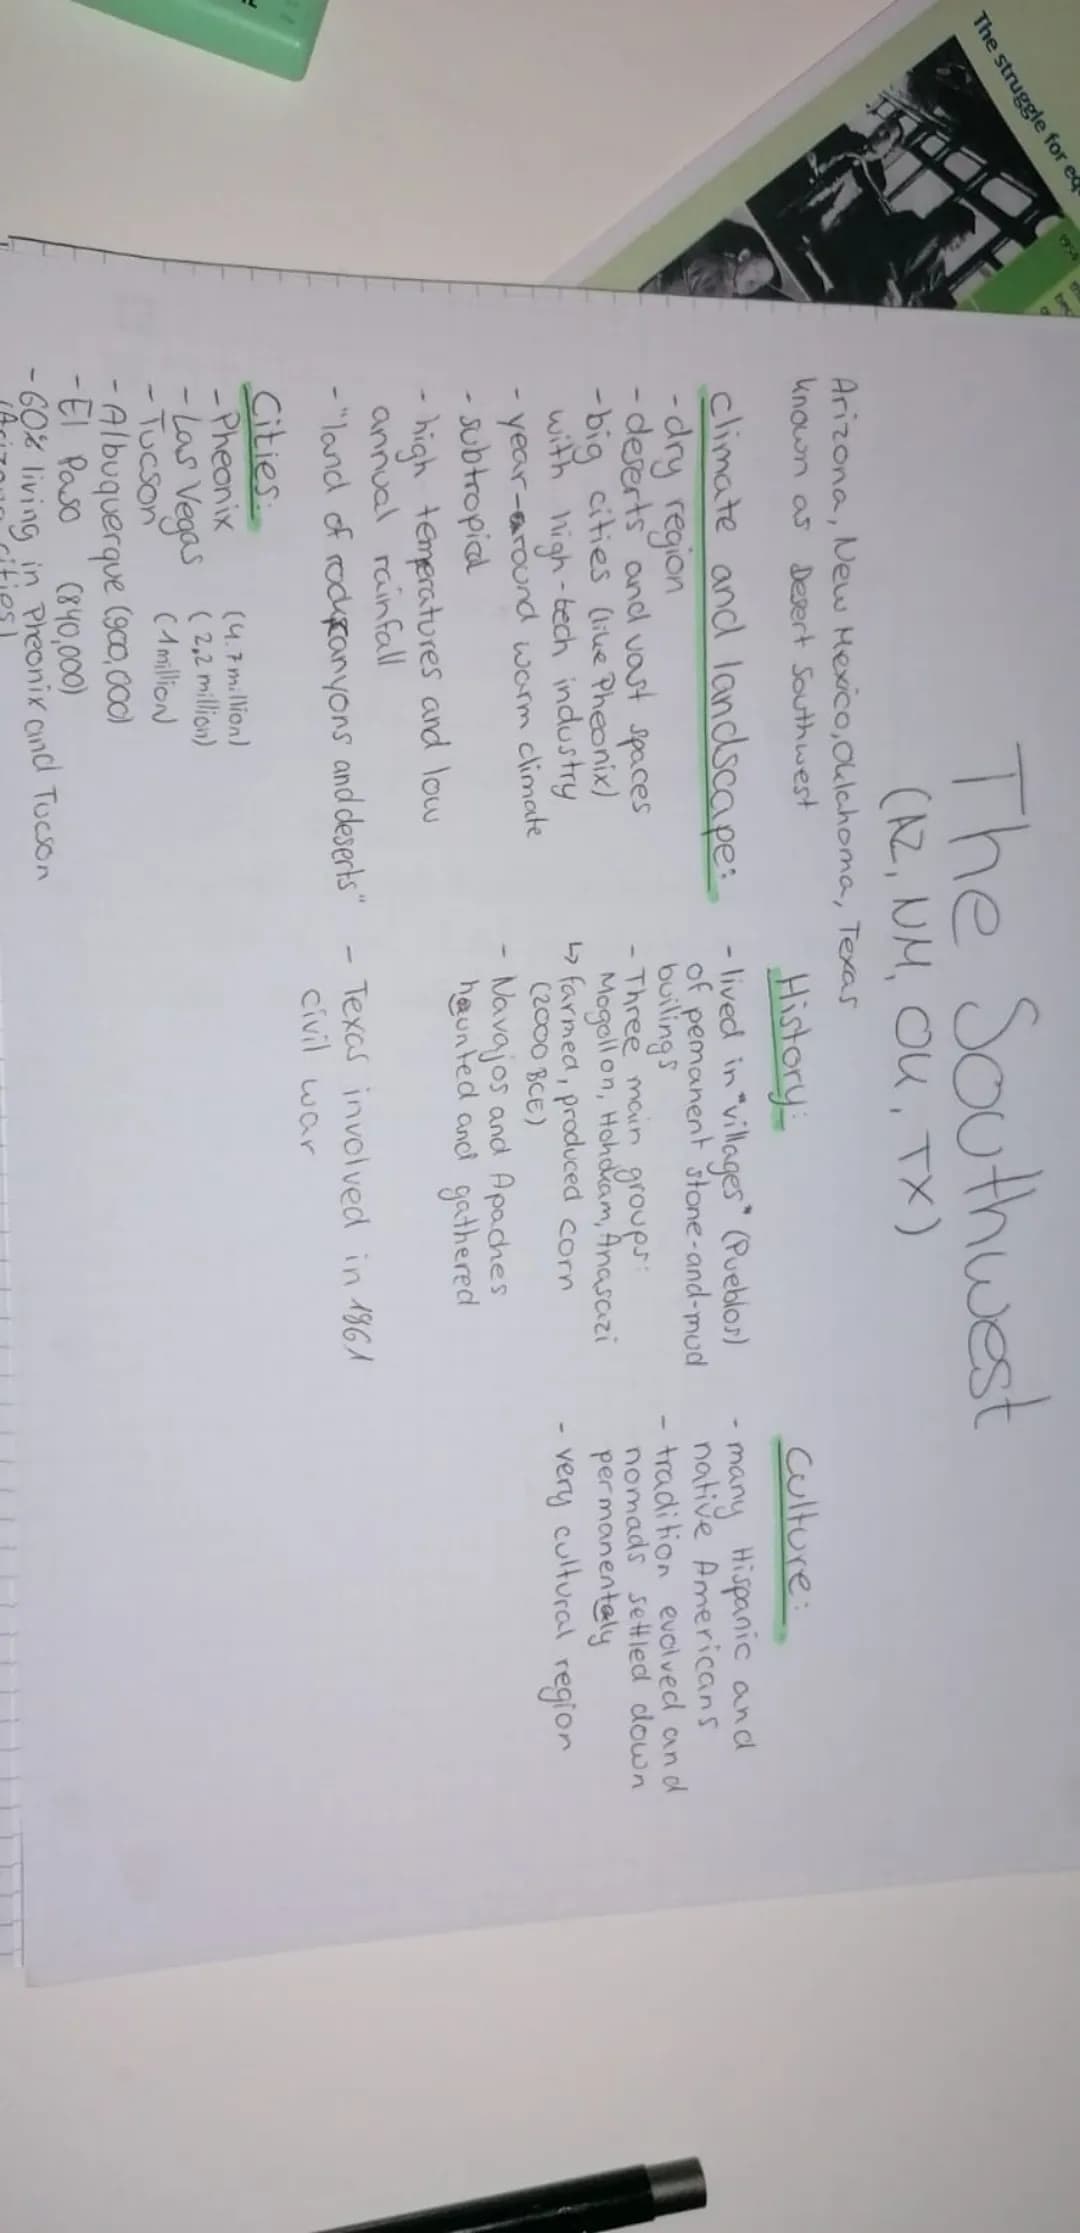 The struggle for eq
The Southwest
(AZ, NM, OK, TX)
Arizona, New Mexico, Oklahoma, Texas
known as Desert Southwest
climate and landscape:
- dry region
- deserts and vast spaces
- big cities (like Pheonix)
with high-tech industry
- year-around warm climate
- subtropical
- high temperatures and low
annual rainfall
- "land of rocks, canyons and deserts"
Cities:
- Pheonix (4.7 million)
- Las Vegas (2,2 million)
- Tucson (1 million)
- Albuquerque (900,000)
- El Paso (840,000)
- 60% living in Pheonix and Tucson
cities)
History:
- lived in "villages" (Pueblos)
of pemanent stone-and-mud
builings
- Three main groups:
Mogollon, Hohokam, Anasazi
↳ farmed, produced corn
(2000 BCE)
- Navajos and Apaches
haunted and gathered
- Texas involved in 1861
civil war
Culture:
- many Hispanic and
native Americans
- tradition evolved and
nomads settled down
permanentaly
- very cultural region